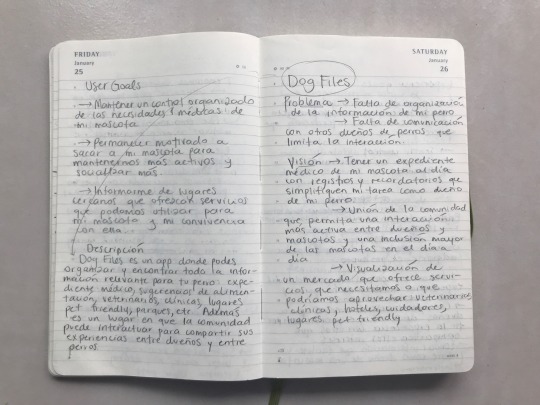 FRIDAY
January
25
User Goals
→ Mantener un control organizado
de las necesidades médicas de
mi mascota
→ Permanecer motivado a
sacar a mi mascota para
mantenernos más activos y
socializar más.
→ Informarme de lugares
cercanos que ofrescan servicios
que podamos utilizar para
mi mascota y mi convivencia
con ella.
↓ Descripción
Dog Files es un app donde podes
organizar y encontrar toda la infor-
mación relevante para tu perro: expe-
diente médico, sugerencias de alimen-
tación, veterinarios, clínicas, lugares
pet friendly, parques, etc. Además
es un lugar en que la comunidad
puede interactuar para compartir sus
experiencias entre dueños y entre
perros.
SATURDAY
January
26
Dog Files
Problema → Falta de organización
de la información de mi perro
→ Falta de comunicación
con otros dueños de perros que
limita la interacción.
Visión → Tener un expediente
médico de mi mascota al día
con registros y recordatorios que
simplifiquen mi tarea como dueño
de mi perro.
→ Unión de la comunidad
que permita una interacción
más activa entre dueños y
mascotas y una inclusión mayor
de las mascotas en el día a
día
→ Visualización de
un mercado que ofrece servi-
cios que necesitamos o que
podríamos aprovechar: veterinarios,
clínicas, hoteles, cuidadores,
lugares pet friendly